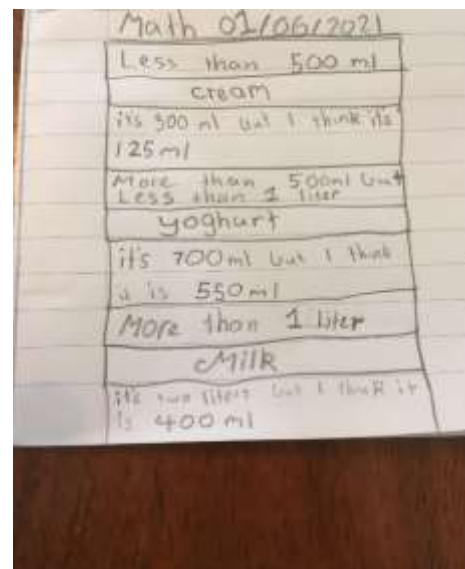 Math 01/06/2021
Less than 500 ml
cream
it's 300 ml but I think it's
125ml
More than 500ml but
Less than 1 liter
yoghurt
it's 700ml but I think
it is 550ml
More than 1 liter
Milk
it's two liters but I think it
is 400 ml